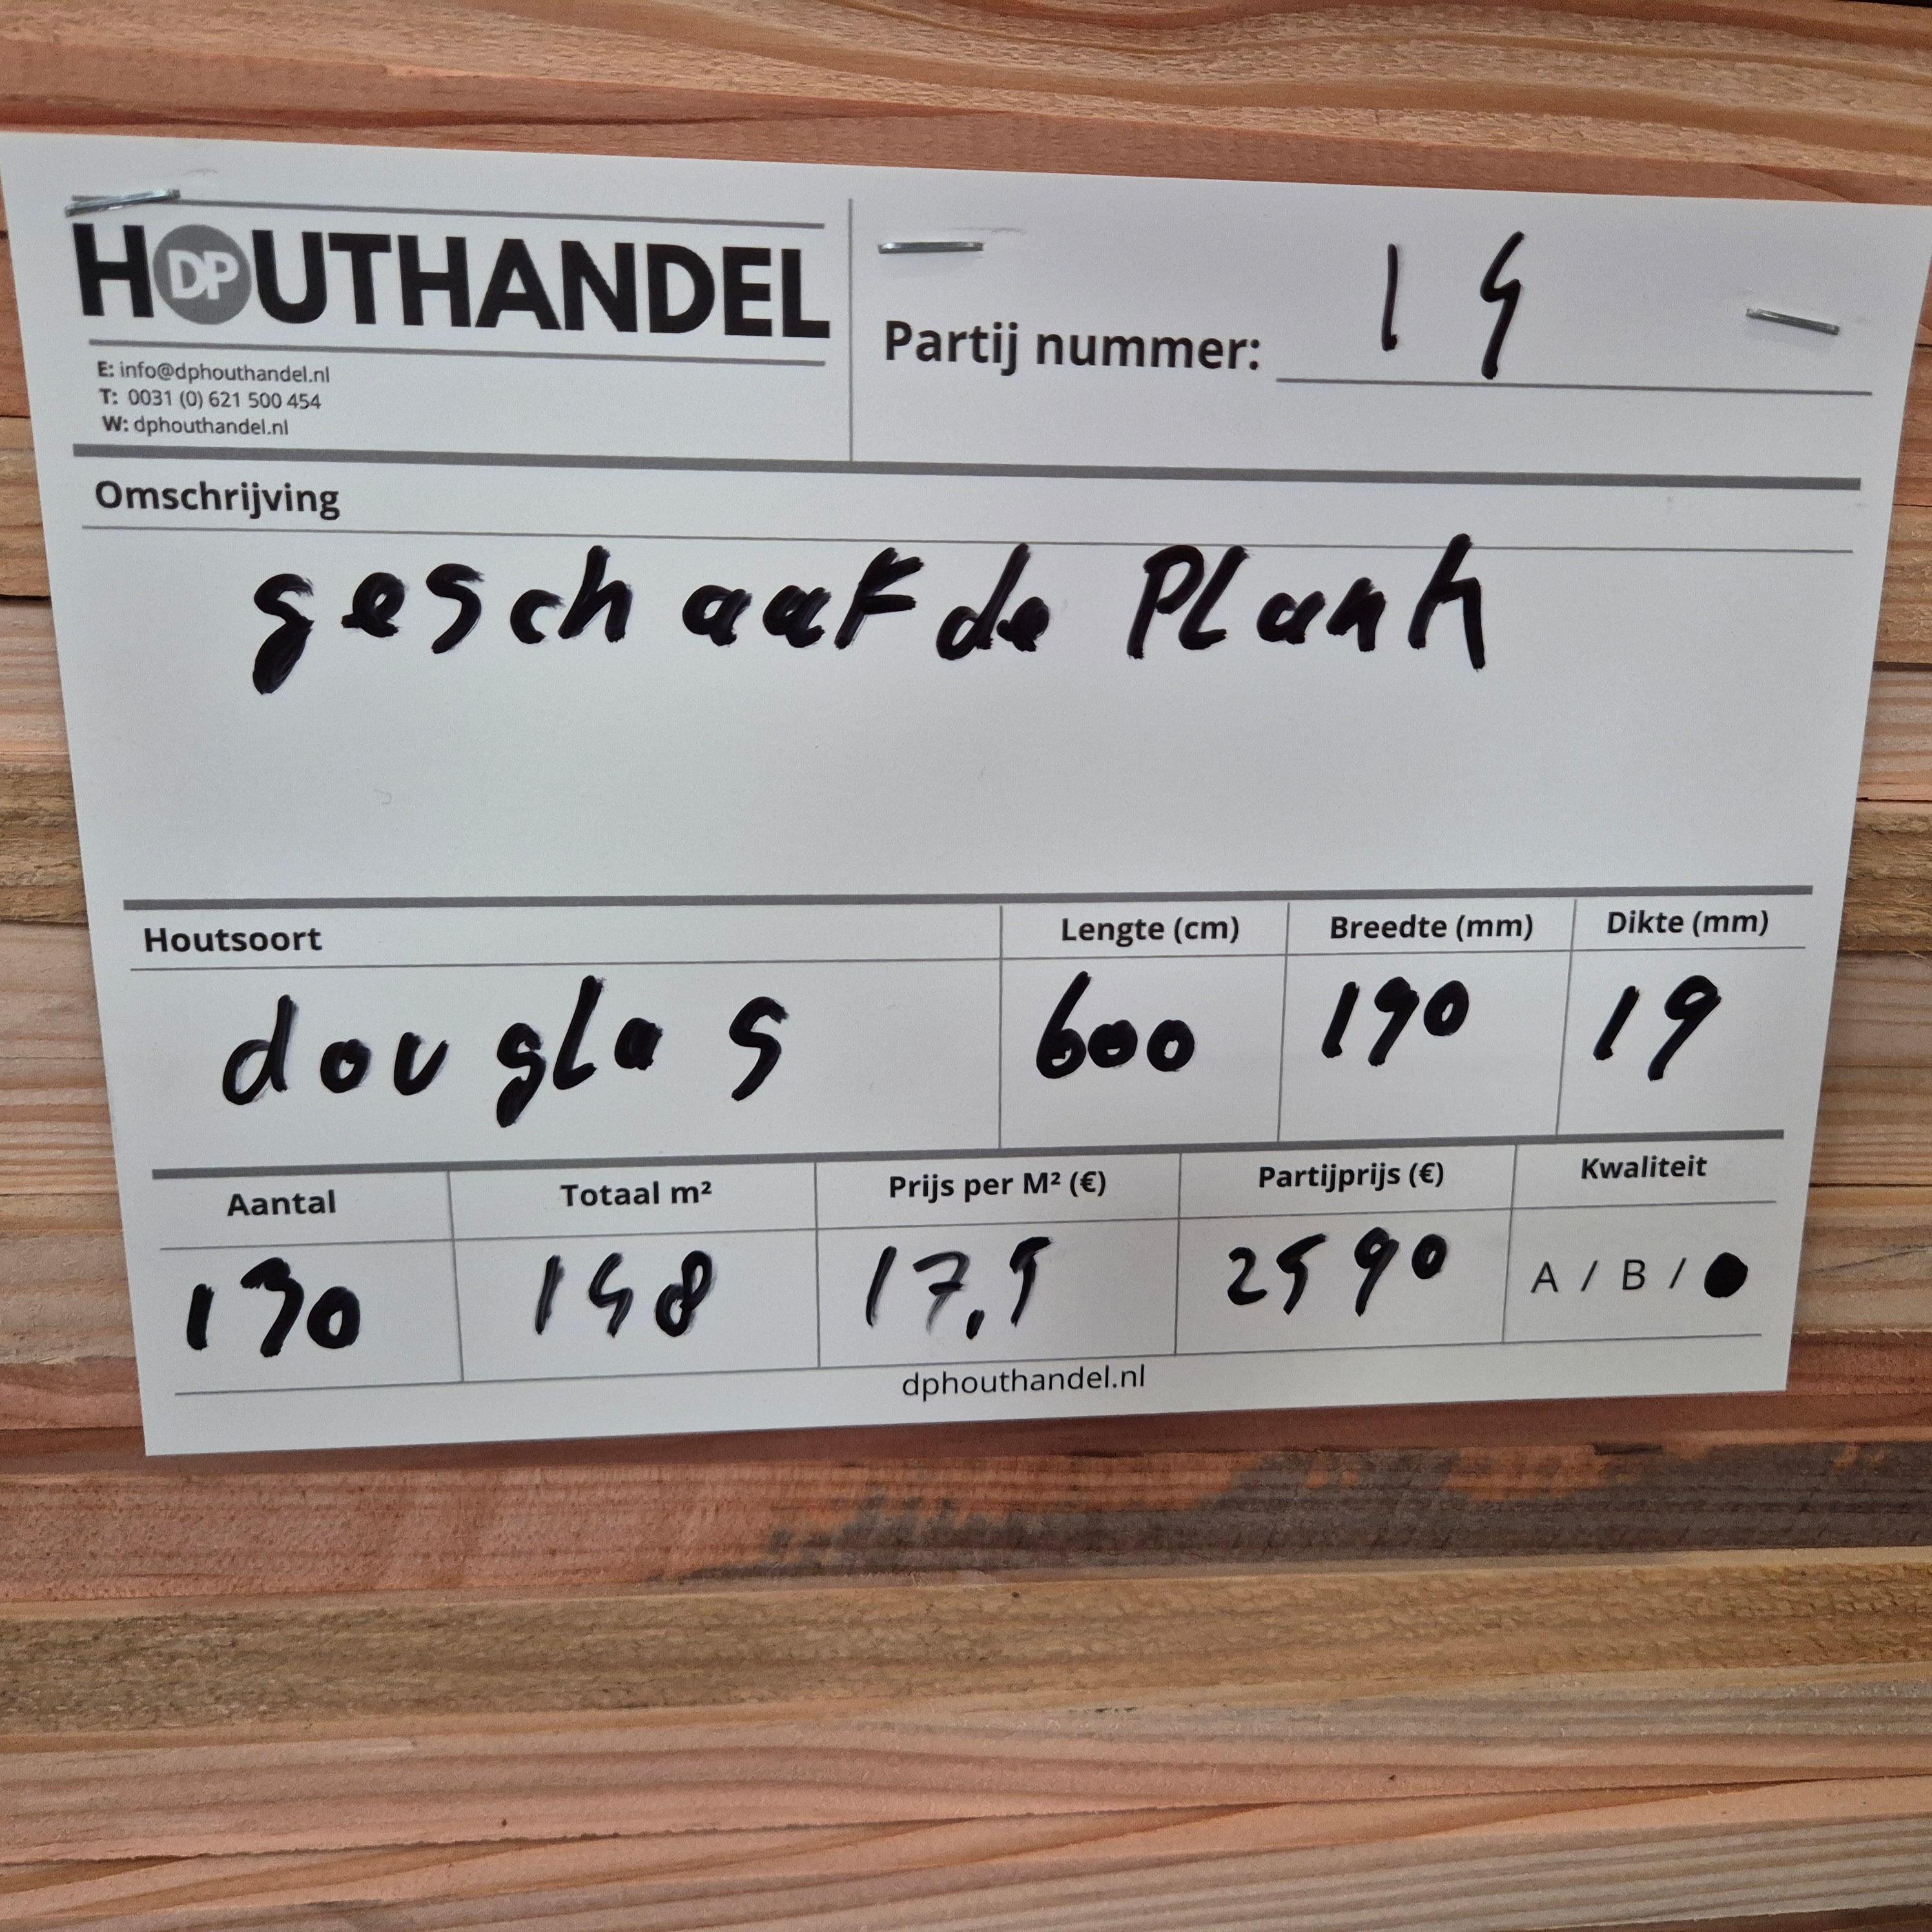 HOUTHANDEL
DP
E: info@dphouthandel.nl
T: 0031 (0) 621 500 454
W: dphouthandel.nl
Partij nummer: 14
Omschrijving
geschaafde Plank
Houtsoort Lengte (cm) Breedte (mm) Dikte (mm)
douglas 600 190 19
Aantal Totaal m² Prijs per M² (€) Partijprijs (€) Kwaliteit
130 148 17,5 2590 A / B /
dphouthandel.nl